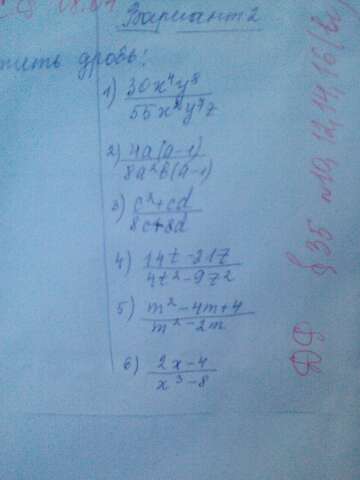 Вариант 2
тить дробь:
1) 30x⁴y⁸ / 55x²y⁷z
2) 4a(a-1) / 8a²b(a-1)
3) c²+cd / 8c+8d
4) 14t-21z / 4t²-9z²
5) m²-4m+4 / m²-2m
6) 2x-4 / x³-8
ДЗ § 35 №10,12,14,16